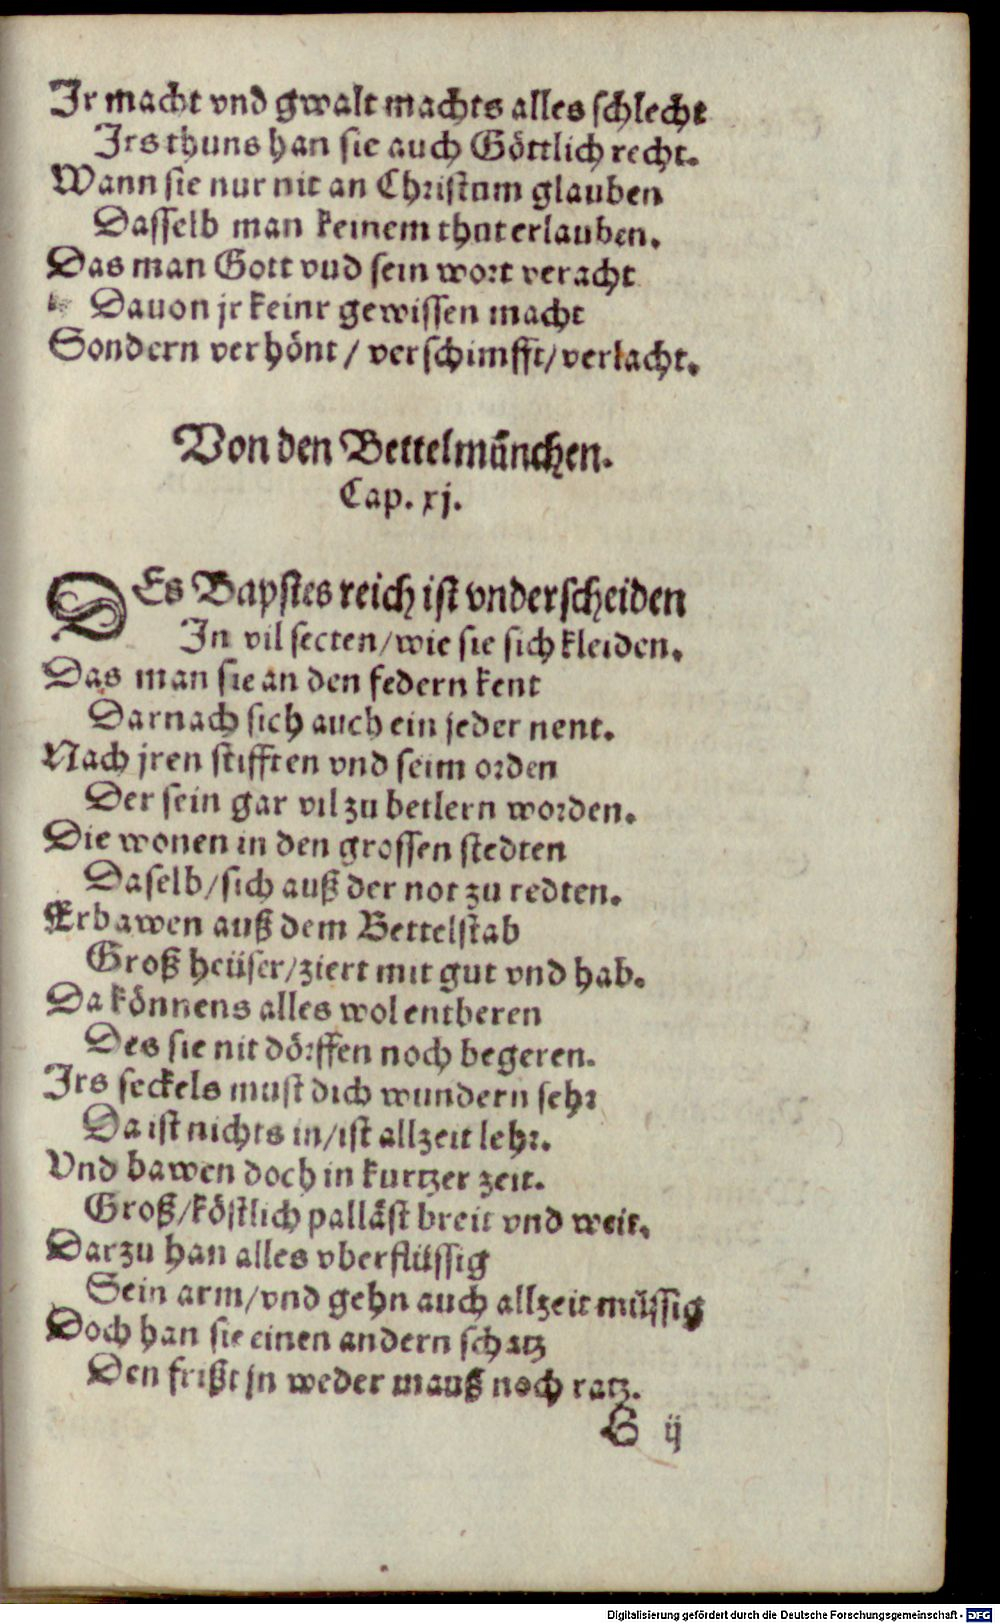 Jr macht vnd gwalt machts alles schlecht
Jrs thuns han sie auch Göttlich recht.
Wann sie nur nit an Christum glauben
Dasselb man keinem thut erlauben.
Das man Gott vud sein wort veracht
Dauon jr keinr gewissen macht
Sondern verhönt / verschimfft/verlacht.
Von den Bettelmünchen.
Cap. xj.
DEs Bapstes reich ist vnderscheiden
In vil secten/wie sie sich kleiden.
Das man sie an den federn kent
Darnach sich auch ein jeder nent.
Nach jren stifften vnd seim orden
Der sein gar vil zu betlern worden.
Die wonen in den grossen stedten
Daselb/sich auß der not zu redten.
Erbawen auß dem Bettelstab
Groß heüser/ziert mit gut vnd hab.
Da könnens alles wol entberen
Des sie nit dörffen noch begeren.
Jrs seckels must dich wundern sehr
Da ist nichts in/ist allzeit lehr.
Vnd bawen doch in kurtzer zeit.
Groß/köstlich palläst breit vnd weit.
Darzu han alles vberflüssig
Sein arm/vnd gehn auch allzeit müssig
Doch han sie einen andern schatz
Den frißt jn weder mauß noch ratz.
G ij
Digitalisierung gefördert durch die Deutsche Forschungsgemeinschaft - DFG